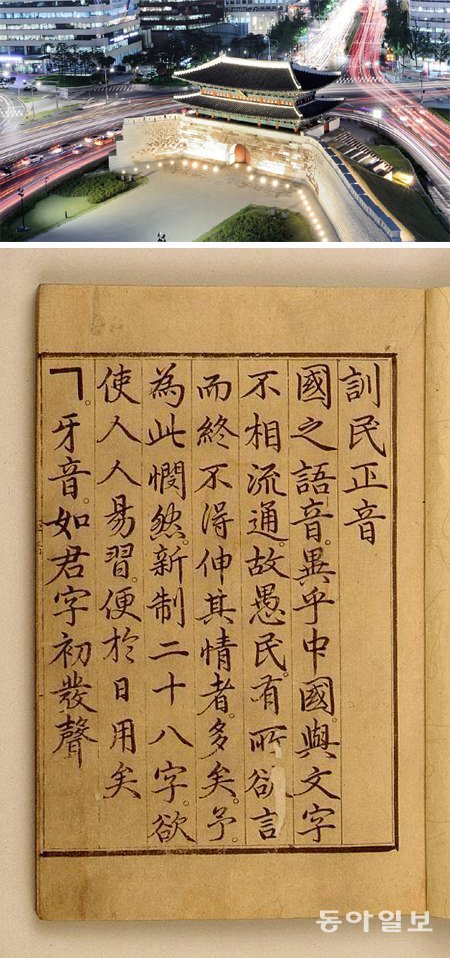 訓民正音
國之語音。異乎中國。與文字
不相流通。故愚民。有所欲言
而終不得伸其情者。多矣。予。
為此憫然。新制二十八字。欲
使人人易習。便於日用矣
ㄱ。牙音。如君字初發聲
동아일보